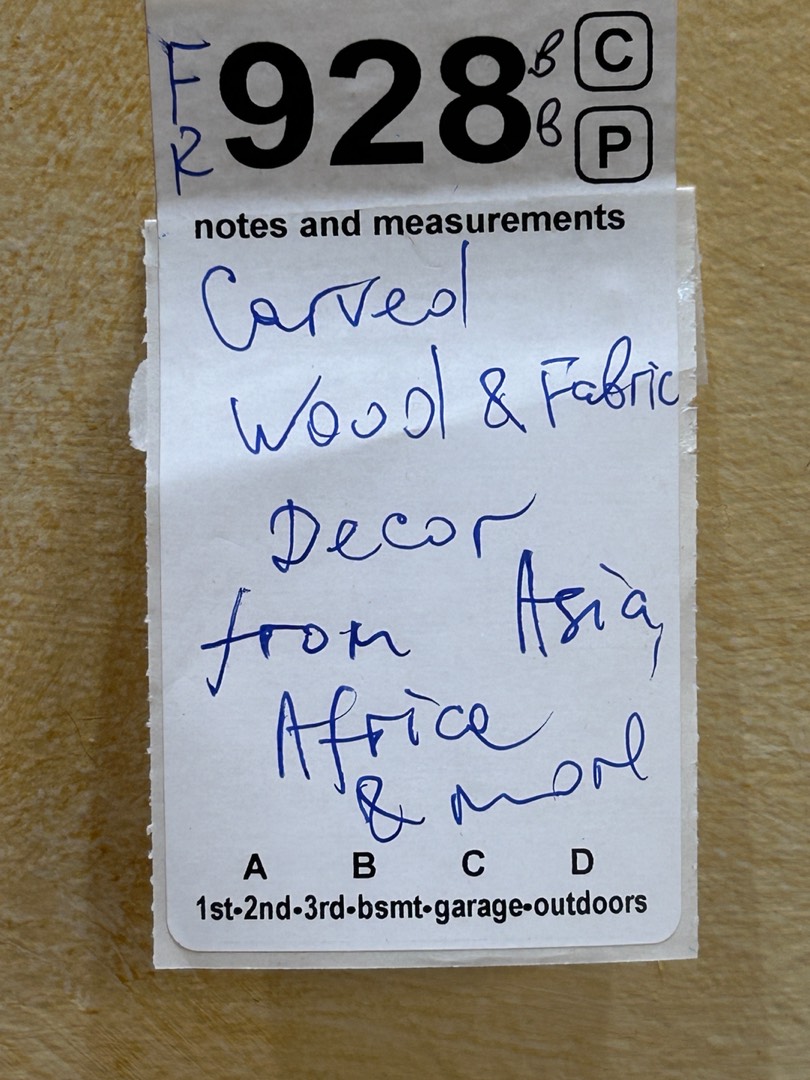 FR 928 B C
B P
notes and measurements
Carved
Wood & Fabric
Decor
from Asia,
Africa
& more
A B C D
1st•2nd•3rd•bsmt•garage•outdoors